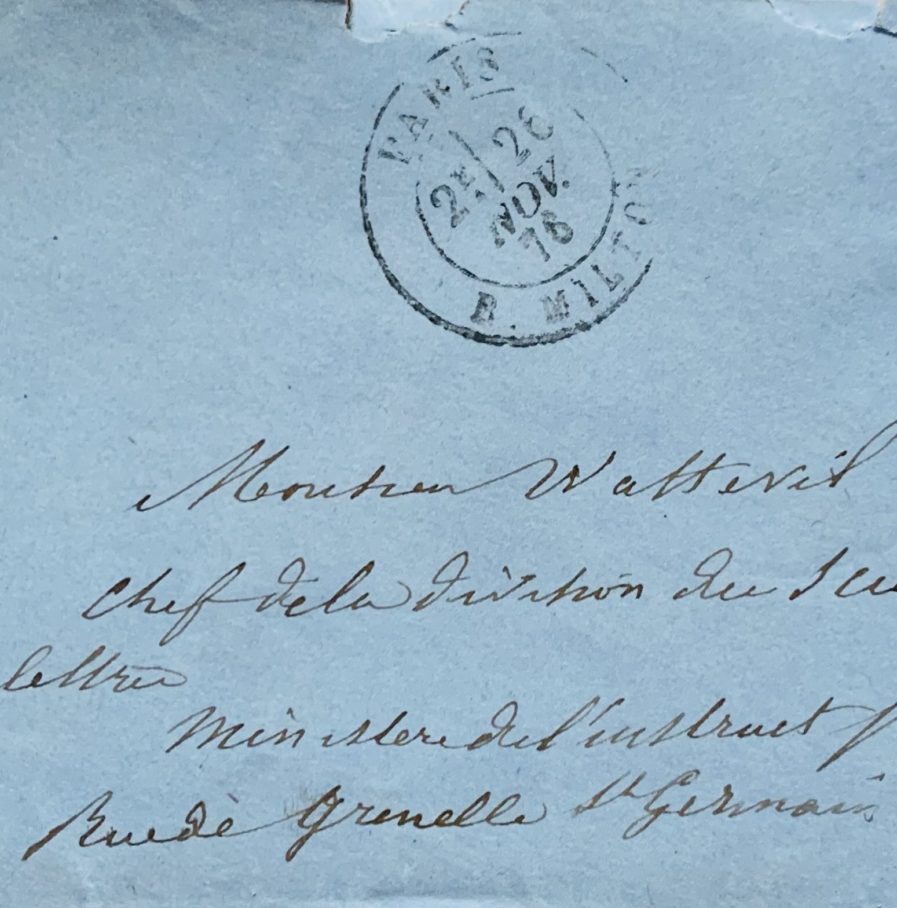 PARIS
2E 26
NOV.
76
R. MILTON
Monsieur Wattevil
chef de la division des
lettres
Ministere de l'instruct
Rue de Grenelle St Germain